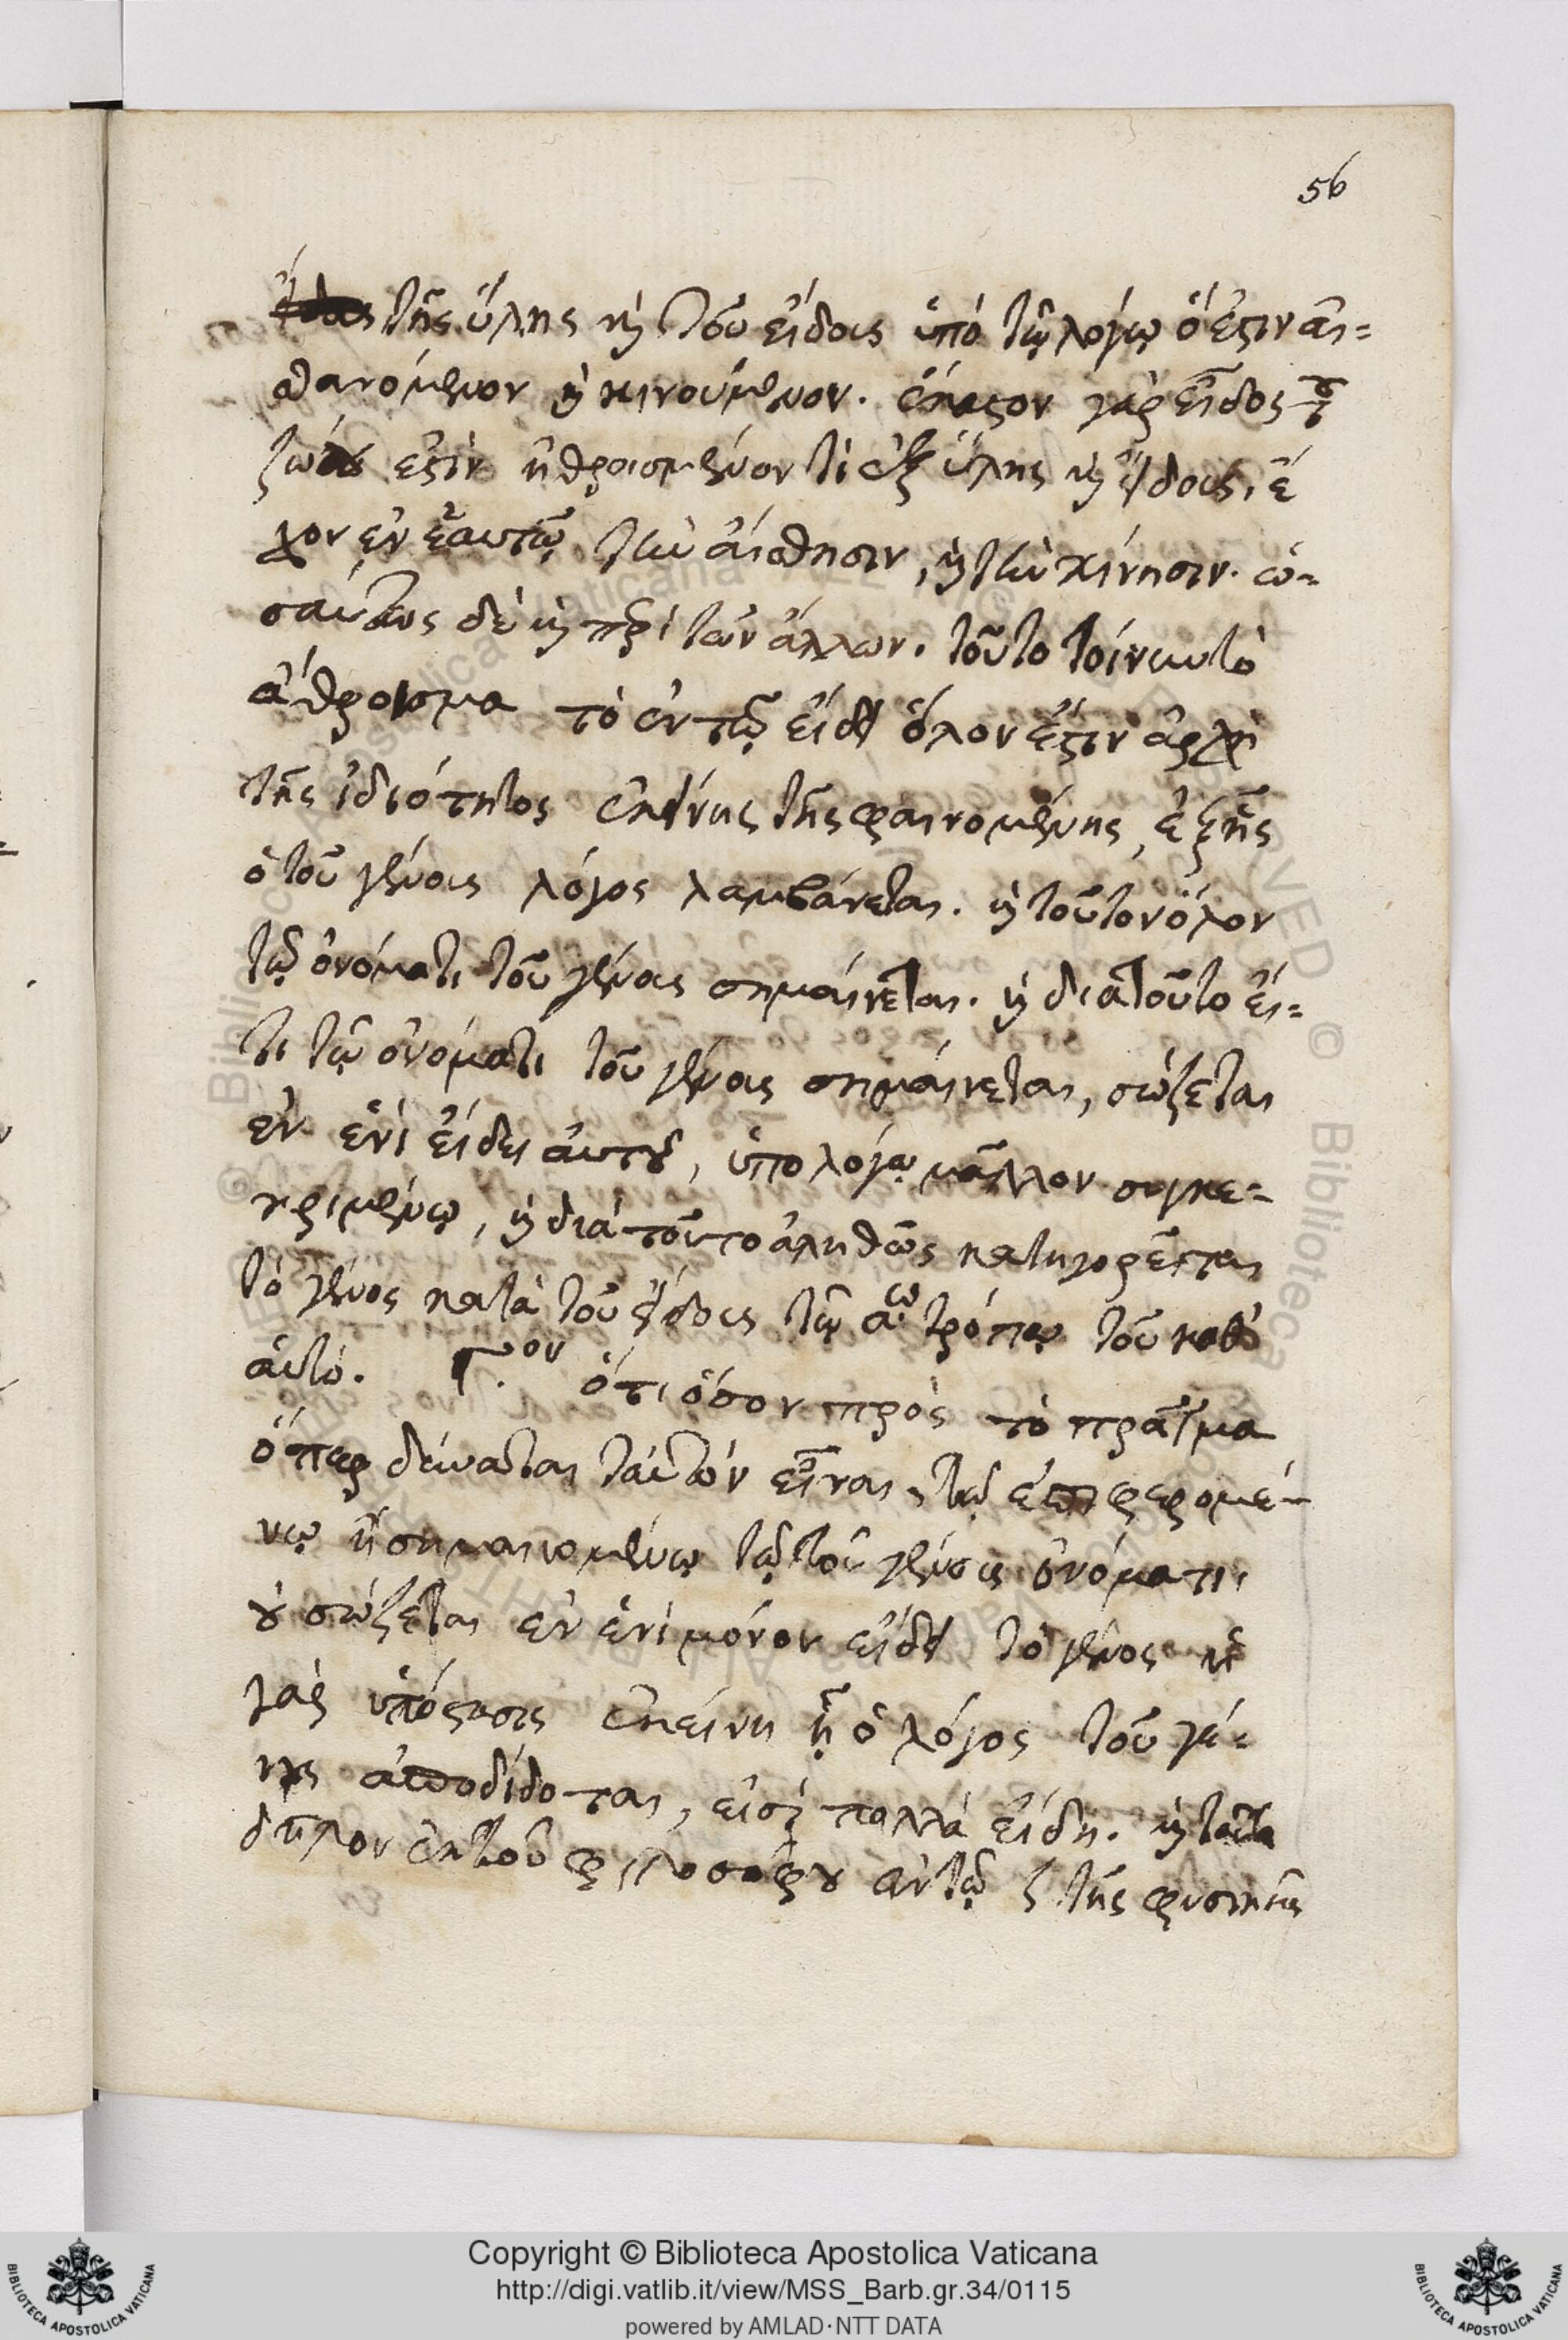 56
τῆς ὕλης καὶ τοῦ εἴδους ὑπὸ τῷ λόγῳ ὅ ἐστιν αἰ=
σθανόμενον ἢ κινούμενον. ἕκαστον γὰρ εἶδος τοῦ
ζώου ἐστὶν ἠθροισμένον τὶ ἐξ ὕλης καὶ εἴδους, ἔ
χον ἐν ἑαυτῷ τὴν αἴσθησιν, καὶ τὴν κίνησιν. ὡ=
σαύτως δὲ καὶ περὶ τῶν ἄλλων. τοῦτο τοίνυν τὸ
ἄθροισμα τὸ ἐν τῷ εἴδει ὅλον ἐστὶν ἀρχὴ
τῆς ἰδιότητος ἐκείνης τῆς φαινομένης, ἐξ ἧς
ὁ τοῦ γένους λόγος λαμβάνεται. καὶ τοῦτον ὅλον
τῷ ὀνόματι τοῦ γένους σημαίνεται. καὶ διὰ τοῦτο εἴ=
τι τῷ ὀνόματι τοῦ γένους σημαίνεται, σώζεται
ἐν ἑνὶ εἴδει αὐτοῦ, ὑπὸ λόγῳ μᾶλλον συγκε=
κριμένῳ, καὶ διὰ τοῦτο ἀληθῶς κατηγορεῖται
τὸ γένος κατὰ τοῦ εἴδους τῷ αῳ τρόπῳ τοῦ καθ᾽
αὑτό. Γον ὅτι ὅσον πρὸς τὸ πρᾶγμα
ὅπερ δύναται ταὐτὸν εἶναι τῷ ἐπιφερομέ-
νῳ ἢ σημαινομένῳ τῷ τοῦ γένους ὀνόματι,
οὐ σώζεται ἐν ἑνὶ μόνον εἴδει τὸ γένος
γὰρ ὑπόστασις ἐκείνη ᾗ ὁ λόγος τοῦ γέ=
νους ἀποδίδοται, εἰσὶ πολλὰ εἴδη. καὶ ταῦτα
δῆλον ἐκ τοῦ φιλοσόφου ἐν τῷ ζ τῆς φυσικῆς
Copyright © Biblioteca Apostolica Vaticana
http://digi.vatlib.it/view/MSS_Barb.gr.34/0115
powered by AMLAD·NTT DATA